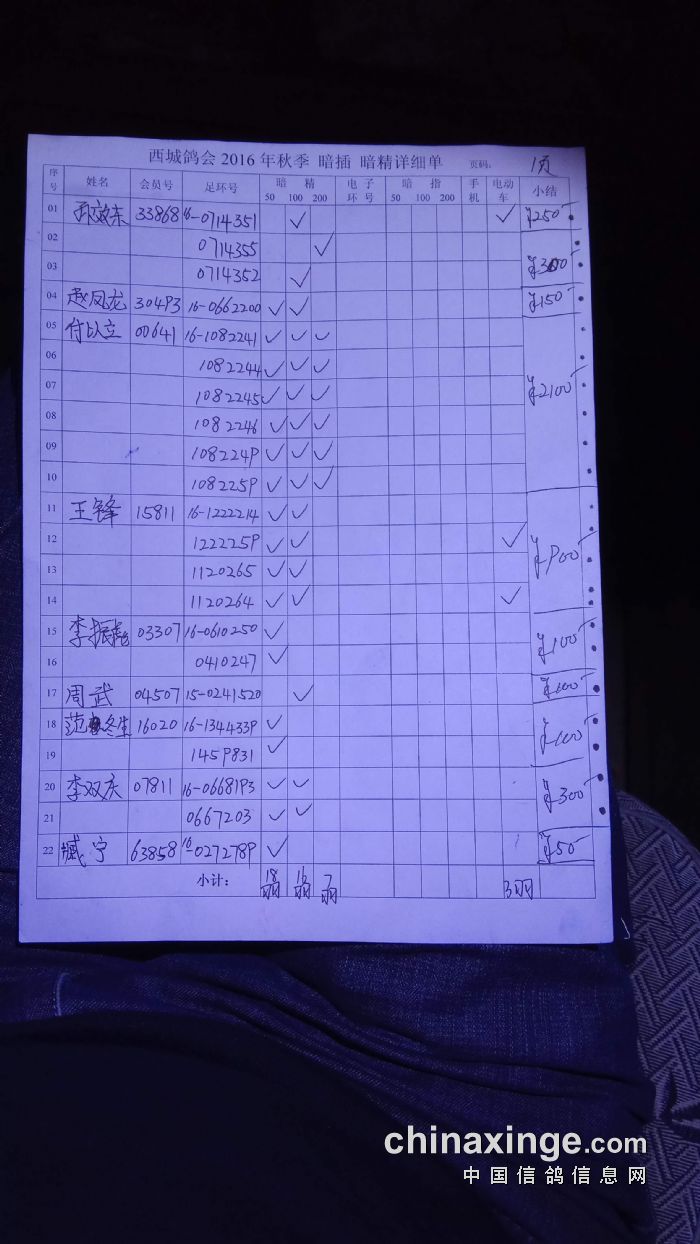 西城鸽会 2016 年秋季 暗插 暗精详细单 页码: 1页
序号 姓名 会员号 足环号 暗 精 电子环号 暗 指 手机 电动车 小结
50 100 200 50 100 200
01 33868 16-0714351 ✓ ✓ ¥250
02 0714355 ✓
03 0714352 ✓ ¥300
04 赵凤龙 30493 16-0662200 ✓ ✓ ¥150
05 付以立 00641 16-1082241 ✓ ✓ ✓
06 1082244 ✓ ✓ ✓
07 1082245 ✓ ✓ ✓ ¥2100
08 1082246 ✓ ✓ ✓
09 1082249 ✓ ✓ ✓
10 1082259 ✓ ✓ ✓
11 王锋 15811 16-1222214 ✓ ✓
12 1222259 ✓ ✓ ✓ ¥900
13 1120265 ✓ ✓
14 1120264 ✓ ✓ ✓
15 李振 03307 16-0610250 ✓ ¥100
16 0410247 ✓
17 周武 04507 15-0241520 ✓ ¥100
18 范冬生 16020 16-1344339 ✓ ¥100
19 1459831 ✓
20 李双庆 07811 16-0668193 ✓ ✓ ¥300
21 0667203 ✓ ✓
22 臧宁 63858 16-0272789 ✓ ¥50
小计: 18羽 16羽 7羽 3羽
chinaxinge.com
中国信鸽信息网